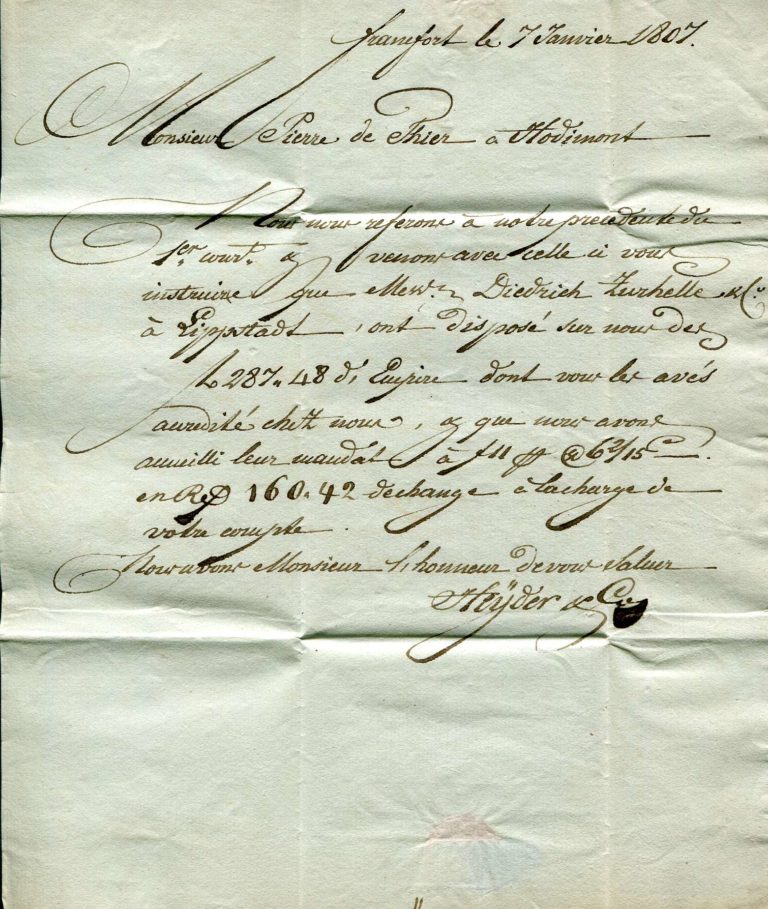 francfort le 7 Janvier 1807.
Monsieur Pierre de Thier à Hodimont
Nous nous referons à notre precedente du
1er. court. & venons avec celle ci vous
instruire que Mess.rs Diedrich Zurhelle & C.o
à Lippstadt, ont disposé sur nous des
f 287.48 d'Empire dont vous les avés
accredité chez nous, & que nous avons
acceuilli leur mandat à f 11
en R 160.42 dechange à la charge de
votre compte.
Nous avons Monsieur l'honneur de vous saluer
Heÿder & Co